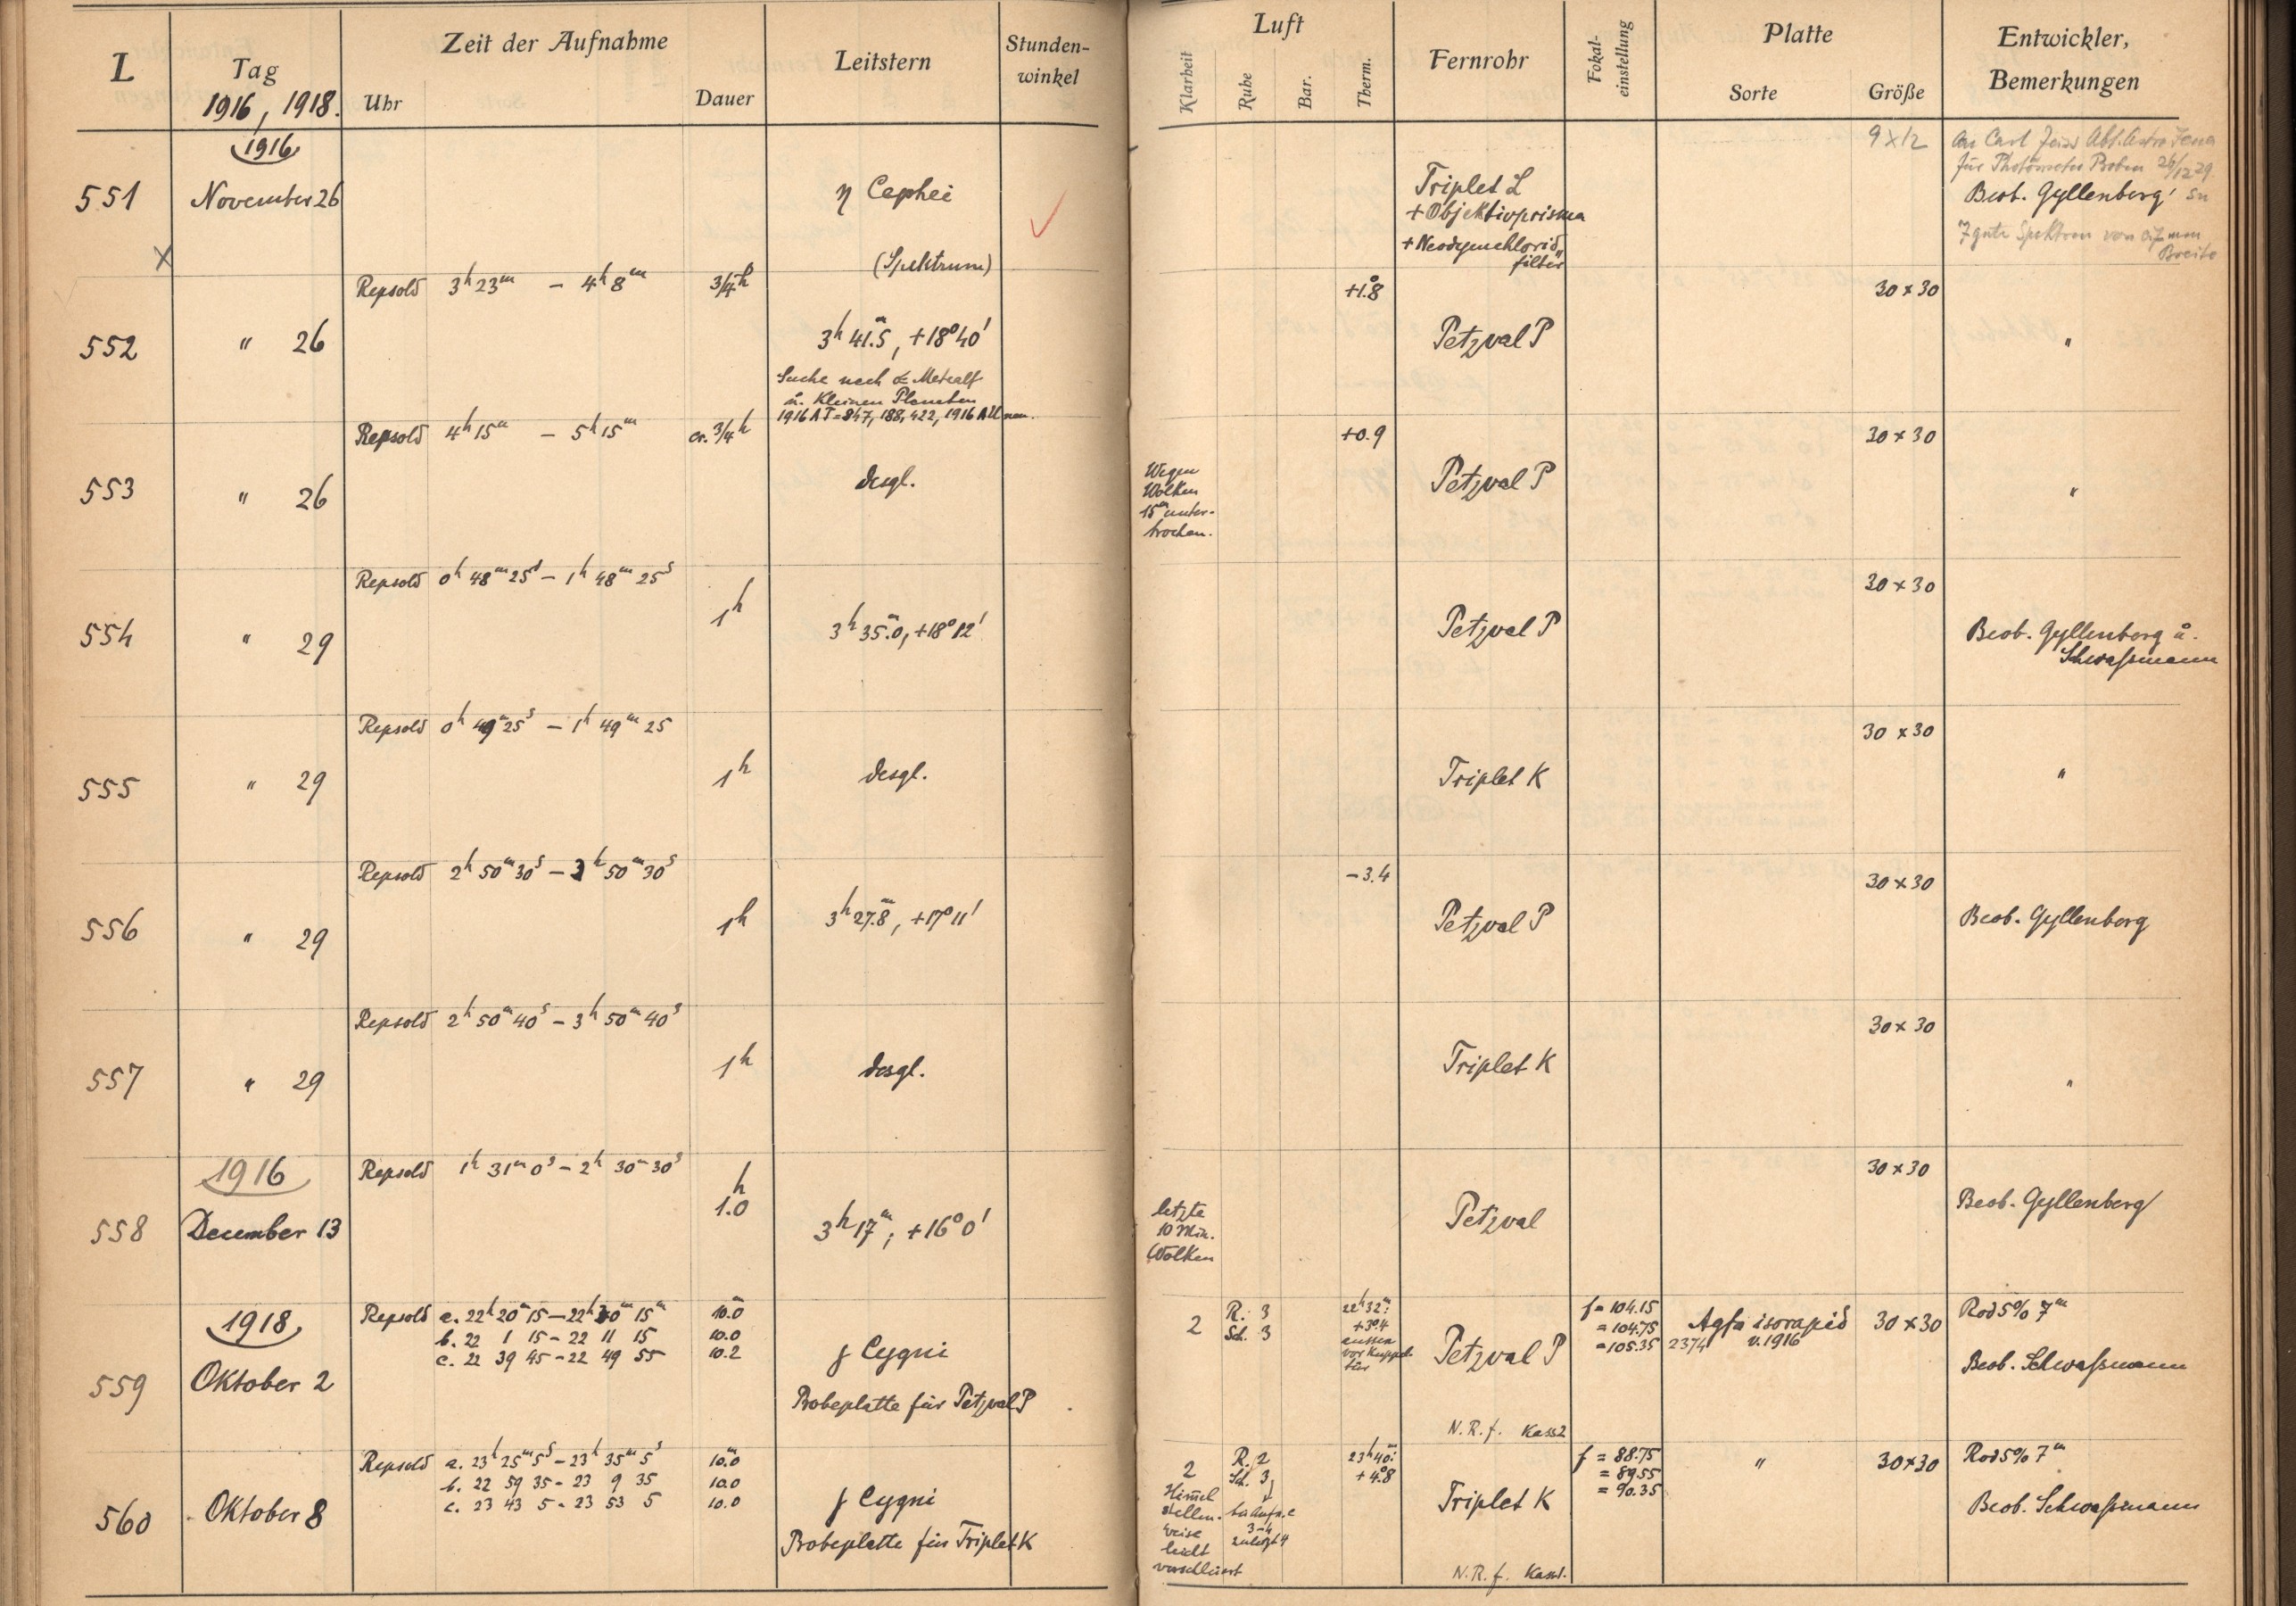 L
Tag
1916, 1918.
Zeit der Aufnahme
Uhr
Dauer
Leitstern
Stunden-
winkel
Luft
Klarheit
Ruhe
Bar.
Therm.
Fernrohr
Fokal-
einstellung
Platte
Sorte
Größe
Entwickler,
Bemerkungen
1916
551
November 26
η Cephei
(Spektrum)
Triplet L
+ Objektivprisma
+ Neodymchlorid
filter
9 x 12
An Carl Zeiss Abt. Astro Jena
für Photometer Proben 24/12 29.
Beob. Gyllenberg
7 gute Spektren von 0,7 mm
Breite
X
552
" 26
Repsold 3h 23m — 4h 8m
3/4h
3h 41.m5, +18° 40'
Suche nach α Metcalf
u. Kleinen Planeten
1916 AT = 847, 188, 422, 1916 AU
+1.°8
Petzval P
30 x 30
"
553
" 26
Repsold 4h 15m — 5h 15m
ca. 3/4h
desgl.
Wegen
Wolken
15m unter-
brochen.
+0.9
Petzval P
30 x 30
"
554
" 29
Repsold 0h 48m 25s — 1h 48m 25s
1h
3h 35.m0, +18° 12'
Petzval P
30 x 30
Beob. Gyllenberg u.
Schwaßmann
555
" 29
Repsold 0h 49m 25s — 1h 49m 25
1h
desgl.
Triplet K
30 x 30
"
556
" 29
Repsold 2h 50m 30s — 3h 50m 30s
1h
3h 27.m8, +17° 11'
−3.4
Petzval P
30 x 30
Beob. Gyllenberg
557
" 29
Repsold 2h 50m 40s — 3h 50m 40s
1h
desgl.
Triplet K
30 x 30
"
1916
558
December 13
Repsold 1h 31m 0s — 2h 30m 30s
1.h0
3h 17m, +16° 0'
letzte
10 Min.
Wolken
Petzval
30 x 30
Beob. Gyllenberg
1918
559
Oktober 2
Repsold a. 22h 20m 15 — 22h 30m 15m
b. 22 1 15 — 22 11 15
c. 22 39 45 — 22 49 55
10.m0
10.0
10.2
γ Cygni
Probeplatte für Petzval P
2
R. 3
Sch. 3
22h 32m:
+3°.4
aussen
vor Kuppel-
tür
Petzval P
N.R.f. Kass2
f = 104.15
= 104.75
= 105.35
Agfa isorapid
2374 v. 1916
30 x 30
Rod 5% 7m
Beob. Schwaßmann
560
Oktober 8
Repsold a. 23h 25m 5s — 23h 35m 5s
b. 22 59 35 — 23 9 35
c. 23 43 5 — 23 53 5
10.m0
10.0
10.0
γ Cygni
Probeplatte für Triplet K
2
Himmel
stellen-
weise
leicht
verschleiert
R. 2
Sch. 3
bei Aufn. c
3-4
zuletzt 4
23h 40m:
+4.°8
Triplet K
N.R.f. Kass1.
f = 88.75
= 89.55
= 90.35
"
30 x 30
Rod 5% 7m
Beob. Schwaßmann